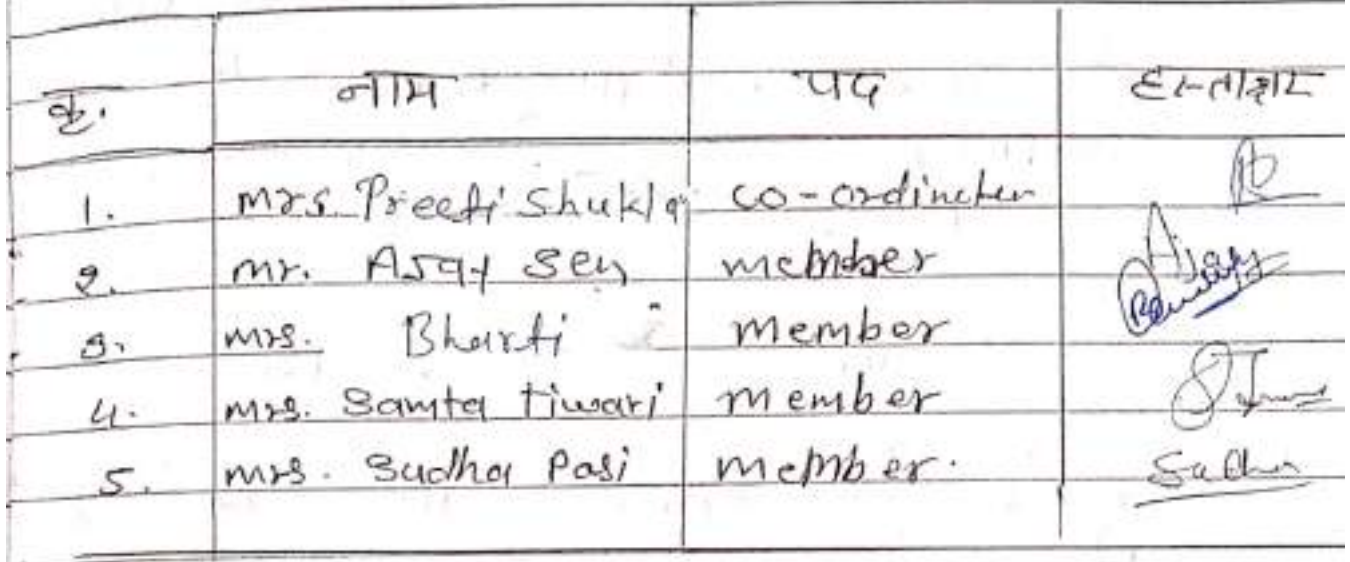 क्र. नाम पद हस्ताक्षर
1. Mrs. Preeti Shukla co-ordinator
2. Mr. Ajay Sen member Ajay
3. Mrs. Bharti member
4. Mrs. Samta tiwari member
5. Mrs. Sudha Pasi member. Sudha